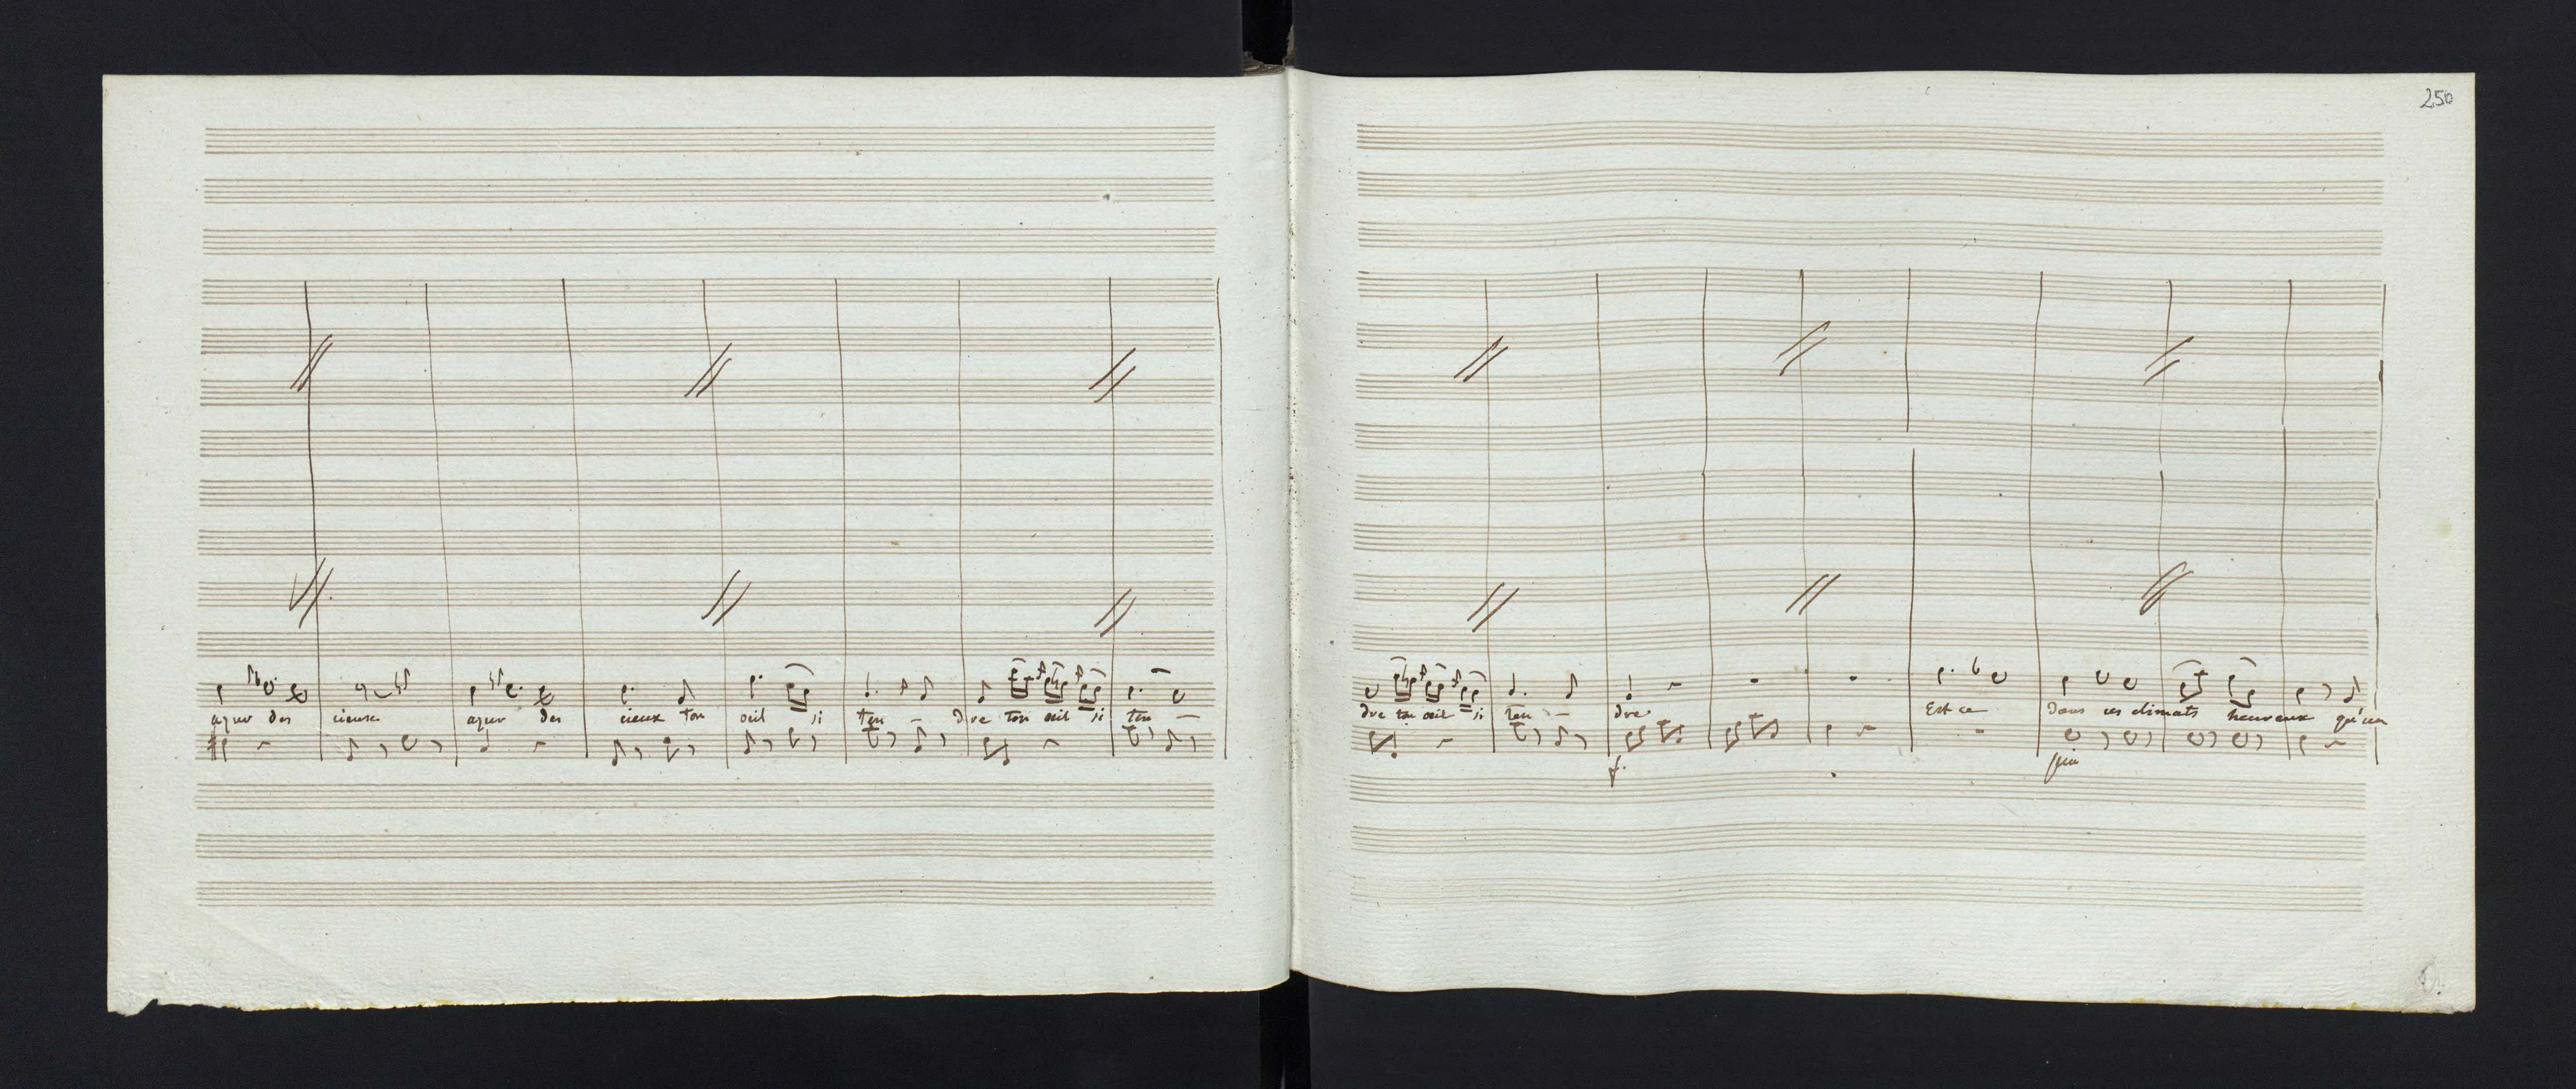 azur des cieux azur des cieux ton œil si ten - dre ton œil si ten -
250
dre ton œil si ten - dre Est ce Dans ces climats heureux qu'un
f.